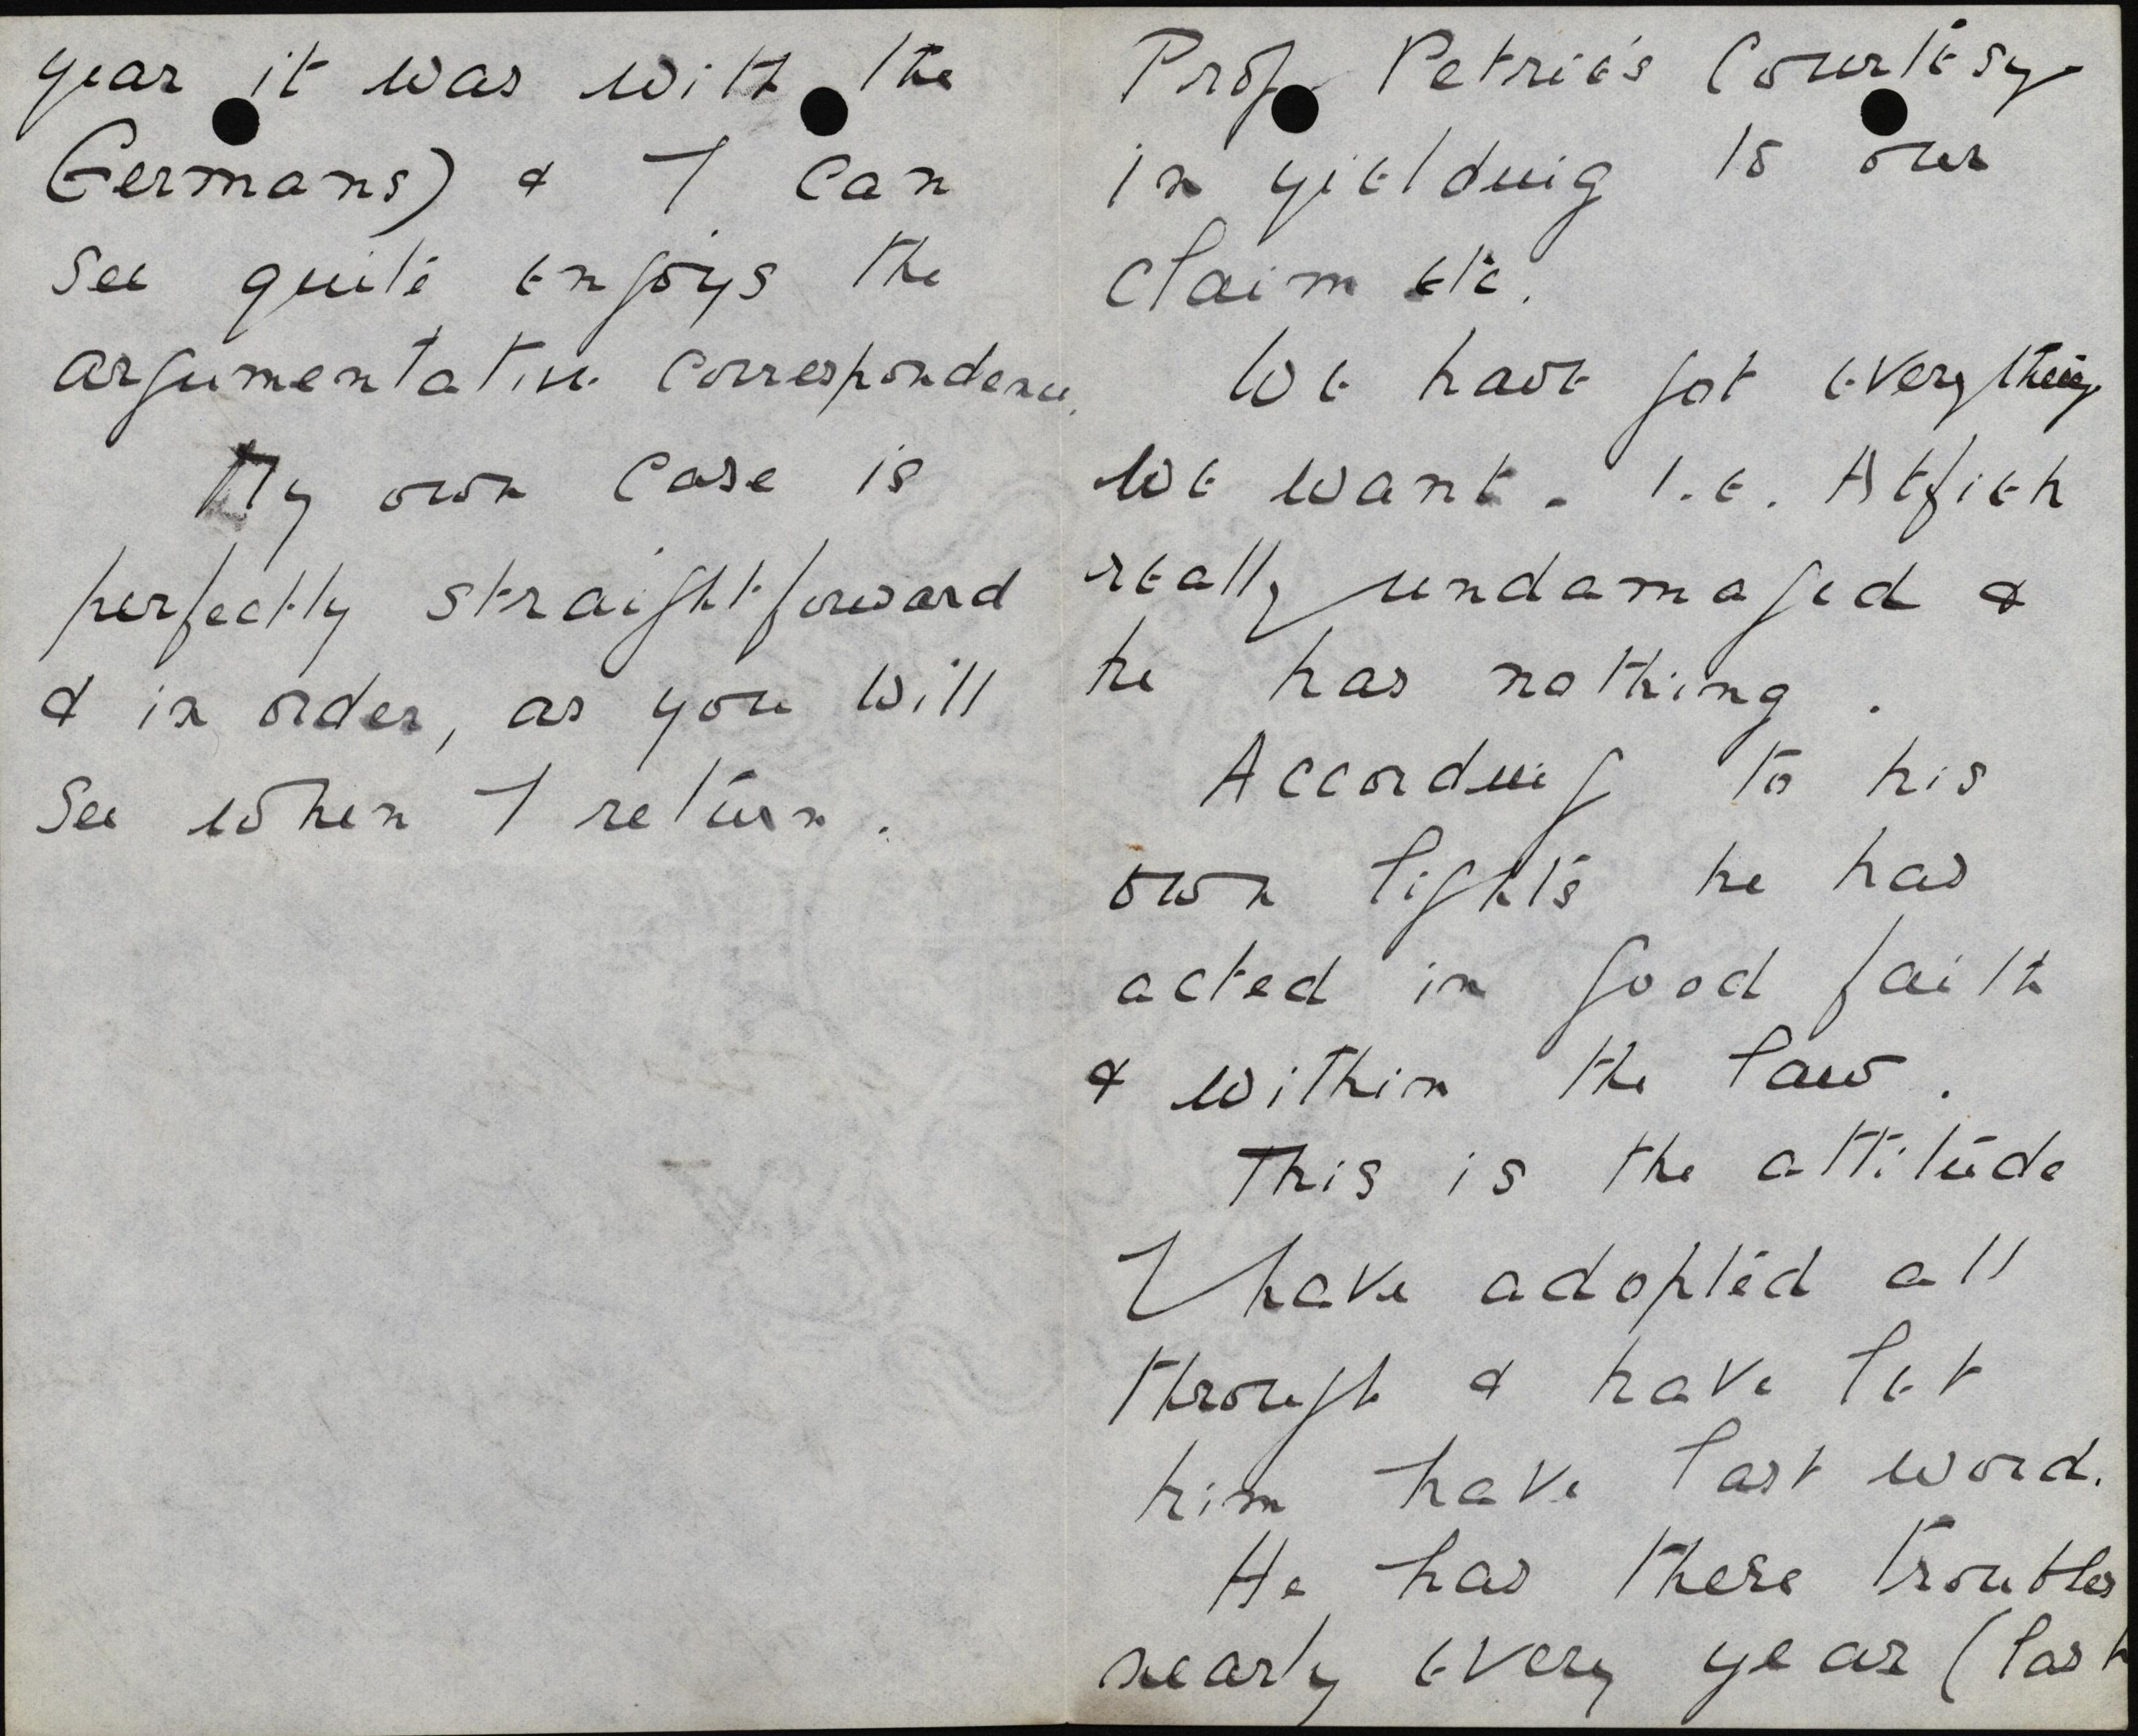 Prof. Petrie's Courtesy
in yielding to our
claim etc.
We have got everything
we want. I.e. Atfieh
really undamaged &
he has nothing.
According to his
own lights he has
acted in good faith
& within the law.
This is the attitude
I have adopted all
through & have let
him have last word.
He has these troubles
nearly every year (last
year it was with the
Germans) & I can
see quite enjoys the
argumentative correspondence.
My own case is
perfectly straightforward
& in order, as you will
see when I return.